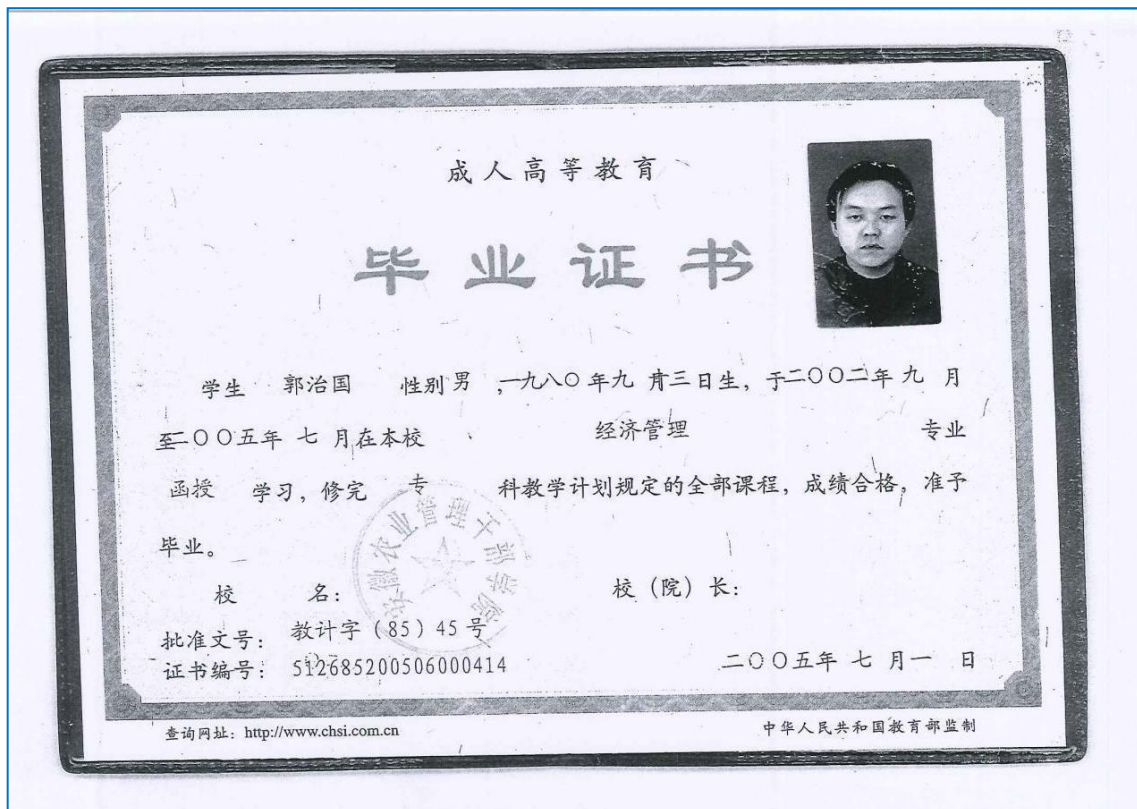 成人高等教育
毕业证书
学生 郭治国 性别 男 ,一九八〇年九 月三日生，于二〇〇二年 九 月
至二〇〇五年 七 月在本校 经济管理 专业
函授 学习，修完 专 科教学计划规定的全部课程，成绩合格，准予
毕业。
安徽农业管理干部学院
校 名： 校（院）长：
批准文号： 教计字（85）45号
证书编号： 512685200506000414 二〇〇五年 七 月一 日
查询网址：http://www.chsi.com.cn 中华人民共和国教育部监制